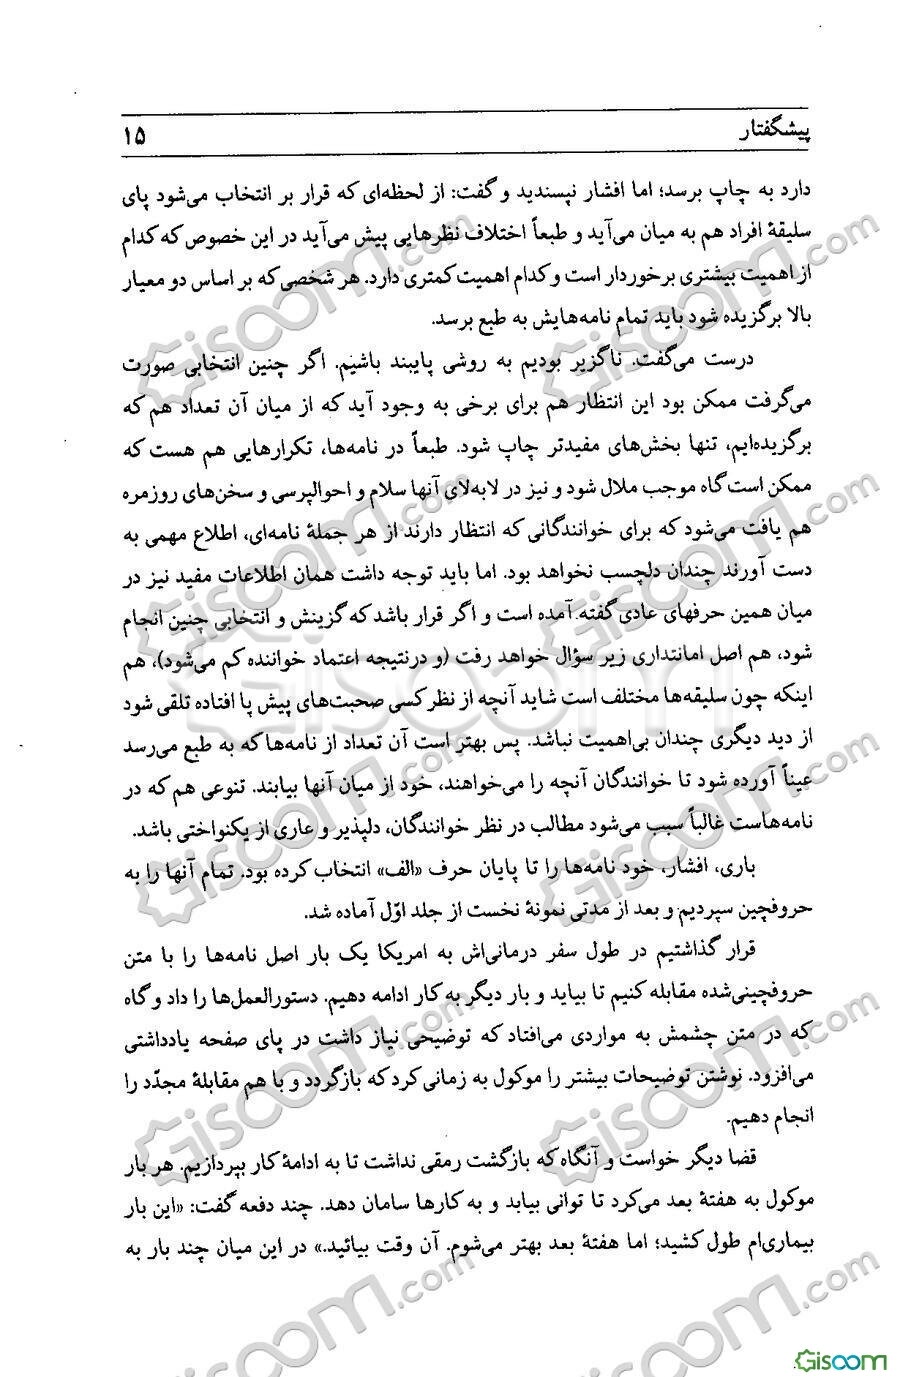 پیشگفتار ۱۵
دارد به چاپ برسد؛ اما افشار نپسندید و گفت: از لحظه‌ای که قرار بر انتخاب می‌شود پای
سلیقهٔ افراد هم به میان می‌آید و طبعاً اختلاف نظرهایی پیش می‌آید در این خصوص که کدام
از اهمیت بیشتری برخوردار است و کدام اهمیت کمتری دارد. هر شخصی که بر اساس دو معیار
بالا برگزیده شود باید تمام نامه‌هایش به طبع برسد.
درست می‌گفت. ناگزیر بودیم به روشی پایبند باشیم. اگر چنین انتخابی صورت
می‌گرفت ممکن بود این انتظار هم برای برخی به وجود آید که از میان آن تعداد هم که
برگزیده‌ایم، تنها بخش‌های مفیدتر چاپ شود. طبعاً در نامه‌ها، تکرارهایی هم هست که
ممکن است گاه موجب ملال شود و نیز در لابه‌لای آنها سلام و احوالپرسی و سخن‌های روزمره
هم یافت می‌شود که برای خوانندگانی که انتظار دارند از هر جملهٔ نامه‌ای، اطلاع مهمی به
دست آورند چندان دلچسب نخواهد بود. اما باید توجه داشت همان اطلاعات مفید نیز در
میان همین حرفهای عادی گفته آمده است و اگر قرار باشد که گزینش و انتخابی چنین انجام
شود، هم اصل امانتداری زیر سؤال خواهد رفت (و درنتیجه اعتماد خواننده کم می‌شود)، هم
اینکه چون سلیقه‌ها مختلف است شاید آنچه از نظر کسی صحبت‌های پیش پا افتاده تلقی شود
از دید دیگری چندان بی‌اهمیت نباشد. پس بهتر است آن تعداد از نامه‌ها که به طبع می‌رسد
عیناً آورده شود تا خوانندگان آنچه را می‌خواهند، خود از میان آنها بیابند. تنوعی هم که در
نامه‌هاست غالباً سبب می‌شود مطالب در نظر خوانندگان، دلپذیر و عاری از یکنواختی باشد.
باری، افشار، خود نامه‌ها را تا پایان حرف «الف» انتخاب کرده بود. تمام آنها را به
حروفچین سپردیم و بعد از مدتی نمونهٔ نخست از جلد اوّل آماده شد.
قرار گذاشتیم در طول سفر درمانی‌اش به امریکا یک بار اصل نامه‌ها را با متن
حروفچینی‌شده مقابله کنیم تا بیاید و بار دیگر به کار ادامه دهیم. دستورالعمل‌ها را داد و گاه
که در متن چشمش به مواردی می‌افتاد که توضیحی نیاز داشت در پای صفحه یادداشتی
می‌افزود. نوشتن توضیحات بیشتر را موکول به زمانی کرد که بازگردد و با هم مقابلهٔ مجدّد را
انجام دهیم.
قضا دیگر خواست و آنگاه که بازگشت رمقی نداشت تا به ادامهٔ کار بپردازیم. هر بار
موکول به هفتهٔ بعد می‌کرد تا توانی بیابد و به کارها سامان دهد. چند دفعه گفت: «این بار
بیماری‌ام طول کشید؛ اما هفتهٔ بعد بهتر می‌شوم. آن وقت بیائید.» در این میان چند بار به
Gisoom
Gisoom.com